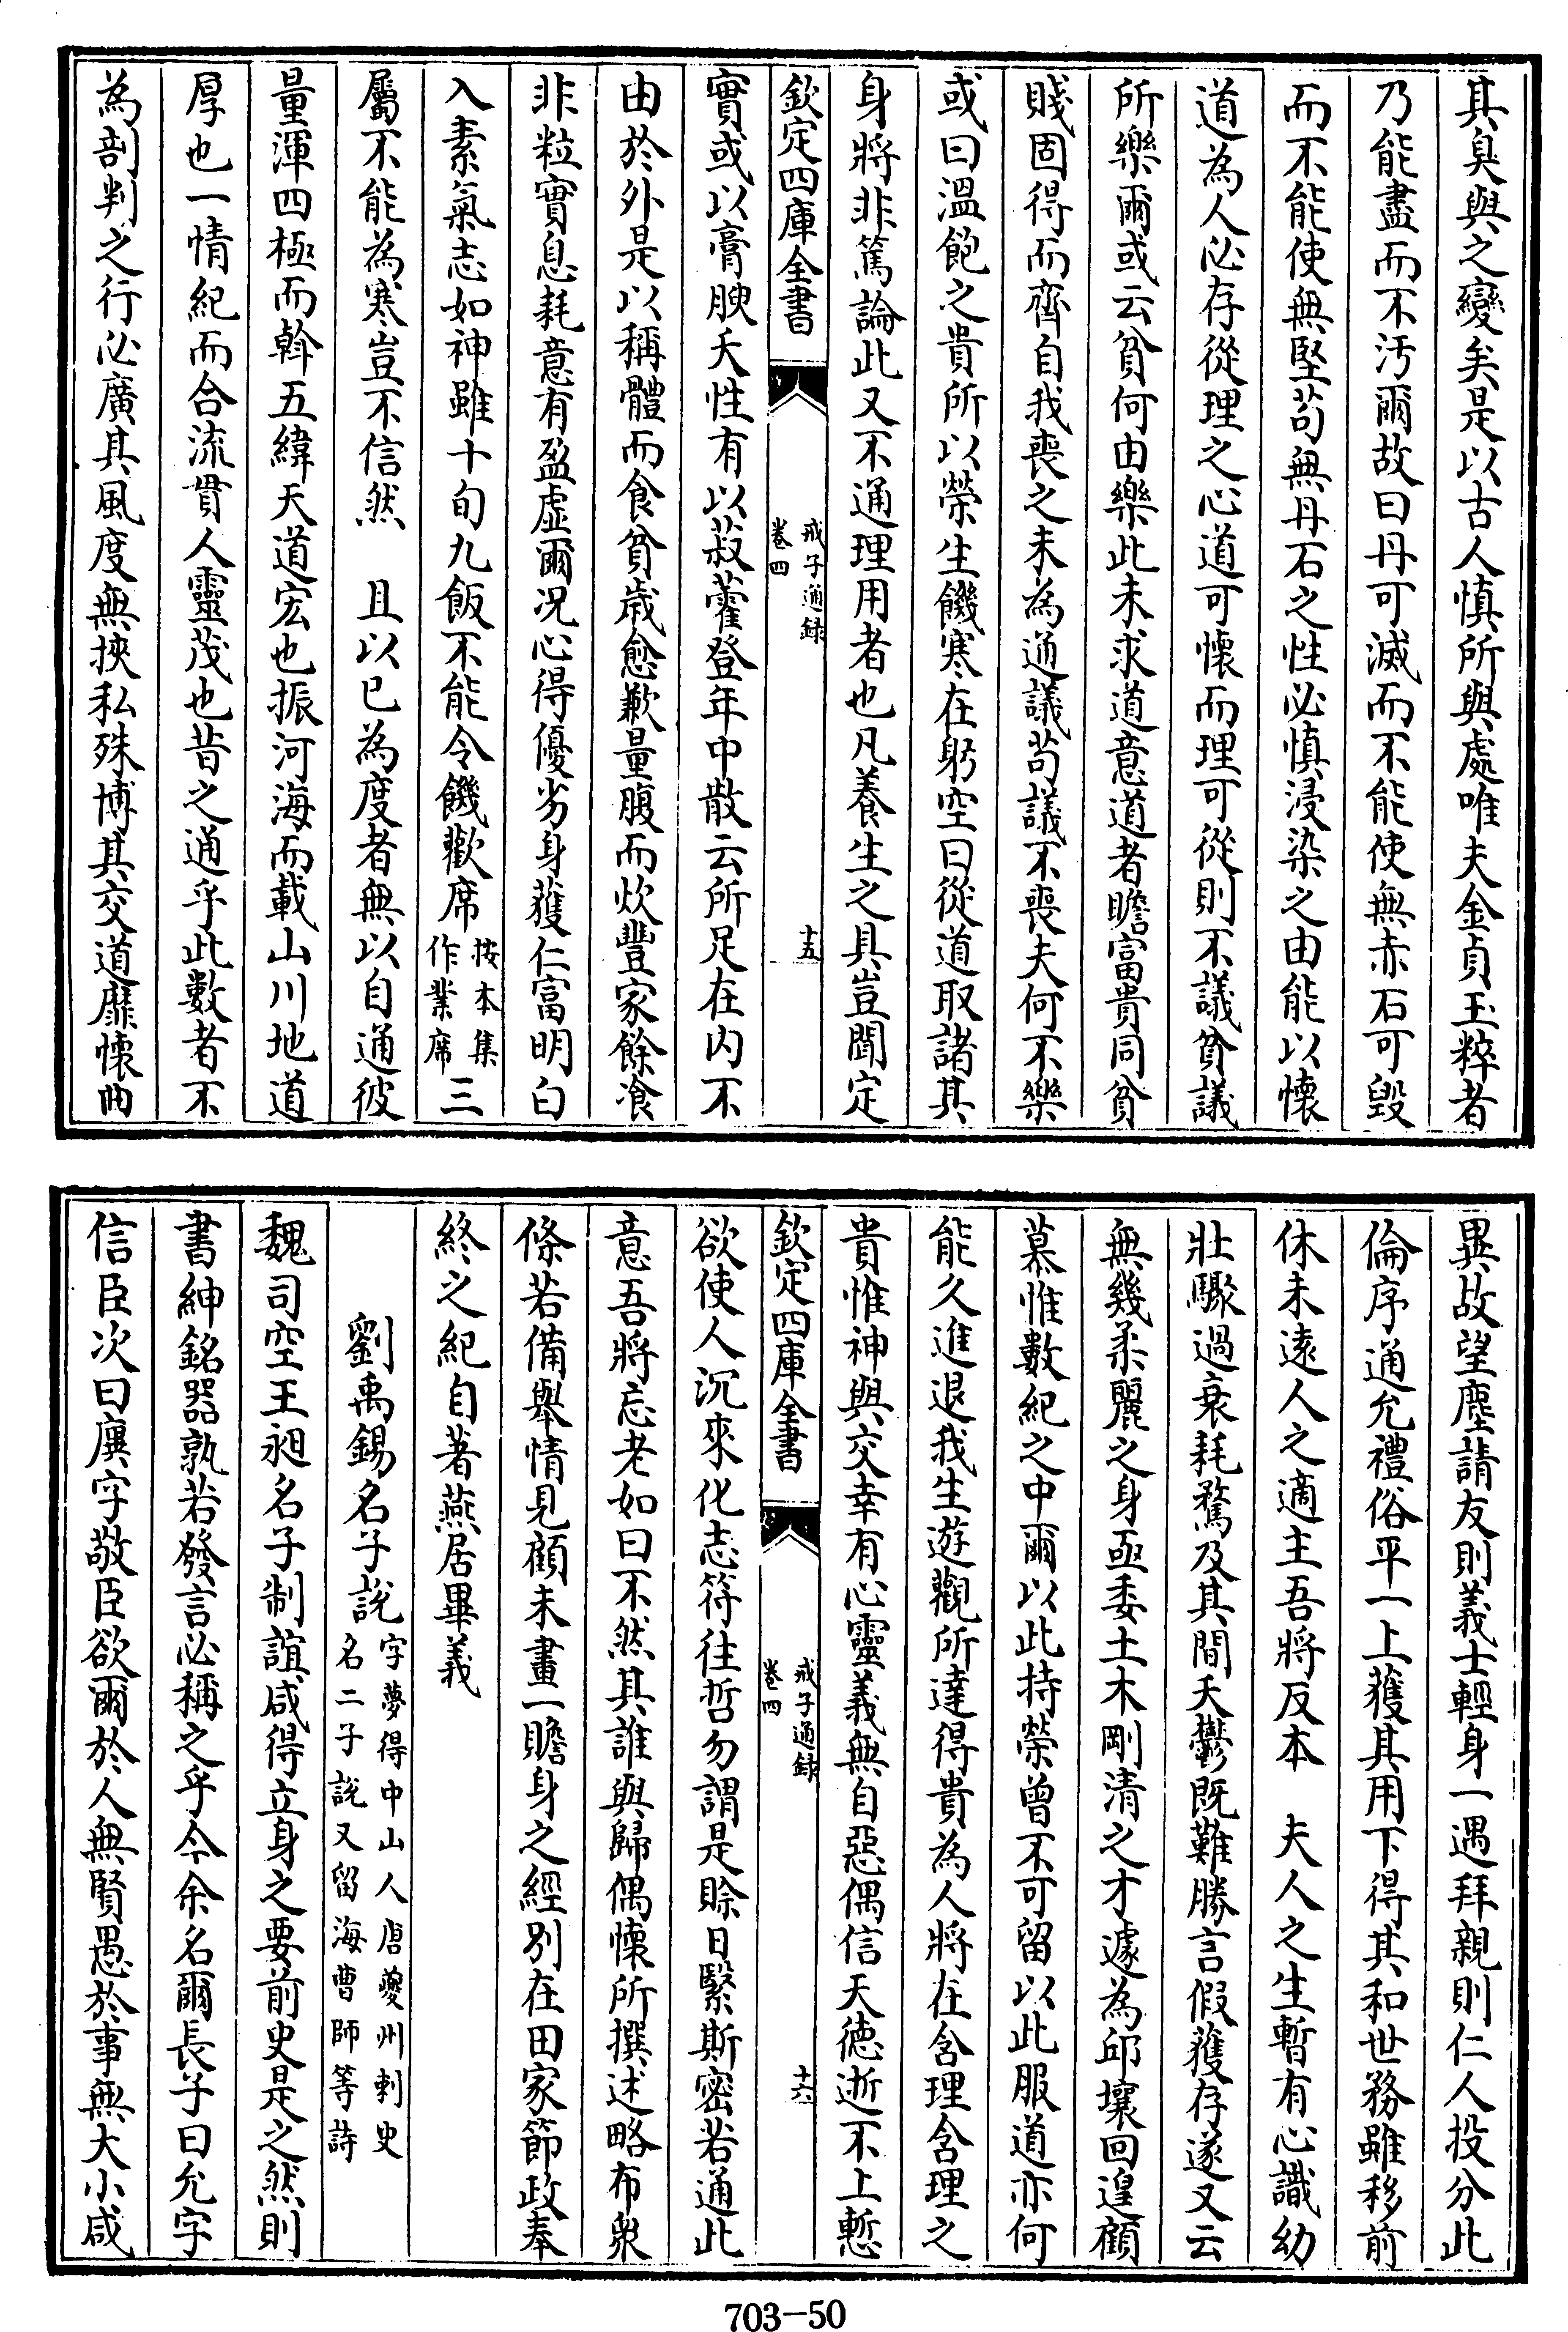 其臭與之變矣是以古人慎所與處唯夫金貞玉粹者
乃能盡而不汚爾故曰丹可滅而不能使無赤石可毀
而不能使無堅苟無丹石之性必慎浸染之由能以懷
道為人必存從理之心道可懷而理可從則不議貧議
所樂爾或云貧何由樂此未求道意道者瞻富貴同貧
賤固得而齊自我喪之未為通議苟議不喪夫何不樂
或曰溫飽之貴所以榮生饑寒在躬空曰從道取諸其
身將非篤論此又不通理用者也凡養生之具豈聞定
欽定四庫全書
戒子通録
卷四
十五
實或以膏腴夭性有以菽藿登年中散云所足在内不
由於外是以稱體而食貧歲愈歉量腹而炊豐家餘飡
非粒實息耗意有盈虛爾况心得優劣身獲仁富明白
入素氣志如神雖十旬九飯不能令饑歡席按本集作業席三
屬不能為寒豈不信然　且以已為度者無以自通彼
量渾四極而斡五緯天道宏也振河海而載山川地道
厚也一情紀而合流貫人靈茂也昔之通乎此數者不
為剖判之行必廣其風度無挾私殊博其交道靡懷曲
異故望塵請友則義士輕身一遇拜親則仁人投分此
倫序通允禮俗平一上獲其用下得其和世務雖移前
休未遠人之適主吾將反本　夫人之生暫有心識幼
壯驟過衰耗騖及其間夭鬱既難勝言假獲存遂又云
無幾柔麗之身亟委土木剛清之才遽為邱壤回遑顧
慕惟數紀之中爾以此持榮曾不可留以此服道亦何
能久進退我生遊觀所達得貴為人將在含理含理之
貴惟神與交幸有心靈義無自惡偶信天徳逝不上慙
欽定四庫全書
戒子通録
卷四
十六
欲使人沉來化志符往哲勿謂是賒日緊斯密若通此
意吾將忘老如曰不然其誰與歸偶懷所撰述略布衆
條若備舉情見顧未書一贍身之經别在田家節政奉
終之紀自著燕居畢義
劉禹錫名子說字夢得中山人唐夔州刺史名二子說又留海曹師等詩
魏司空王昶名子制誼咸得立身之要前史是之然則
書紳銘器孰若發言必稱之乎今余名爾長子曰允字
信臣次曰廙字敬臣欲爾於人無賢愚於事無大小咸
703-50